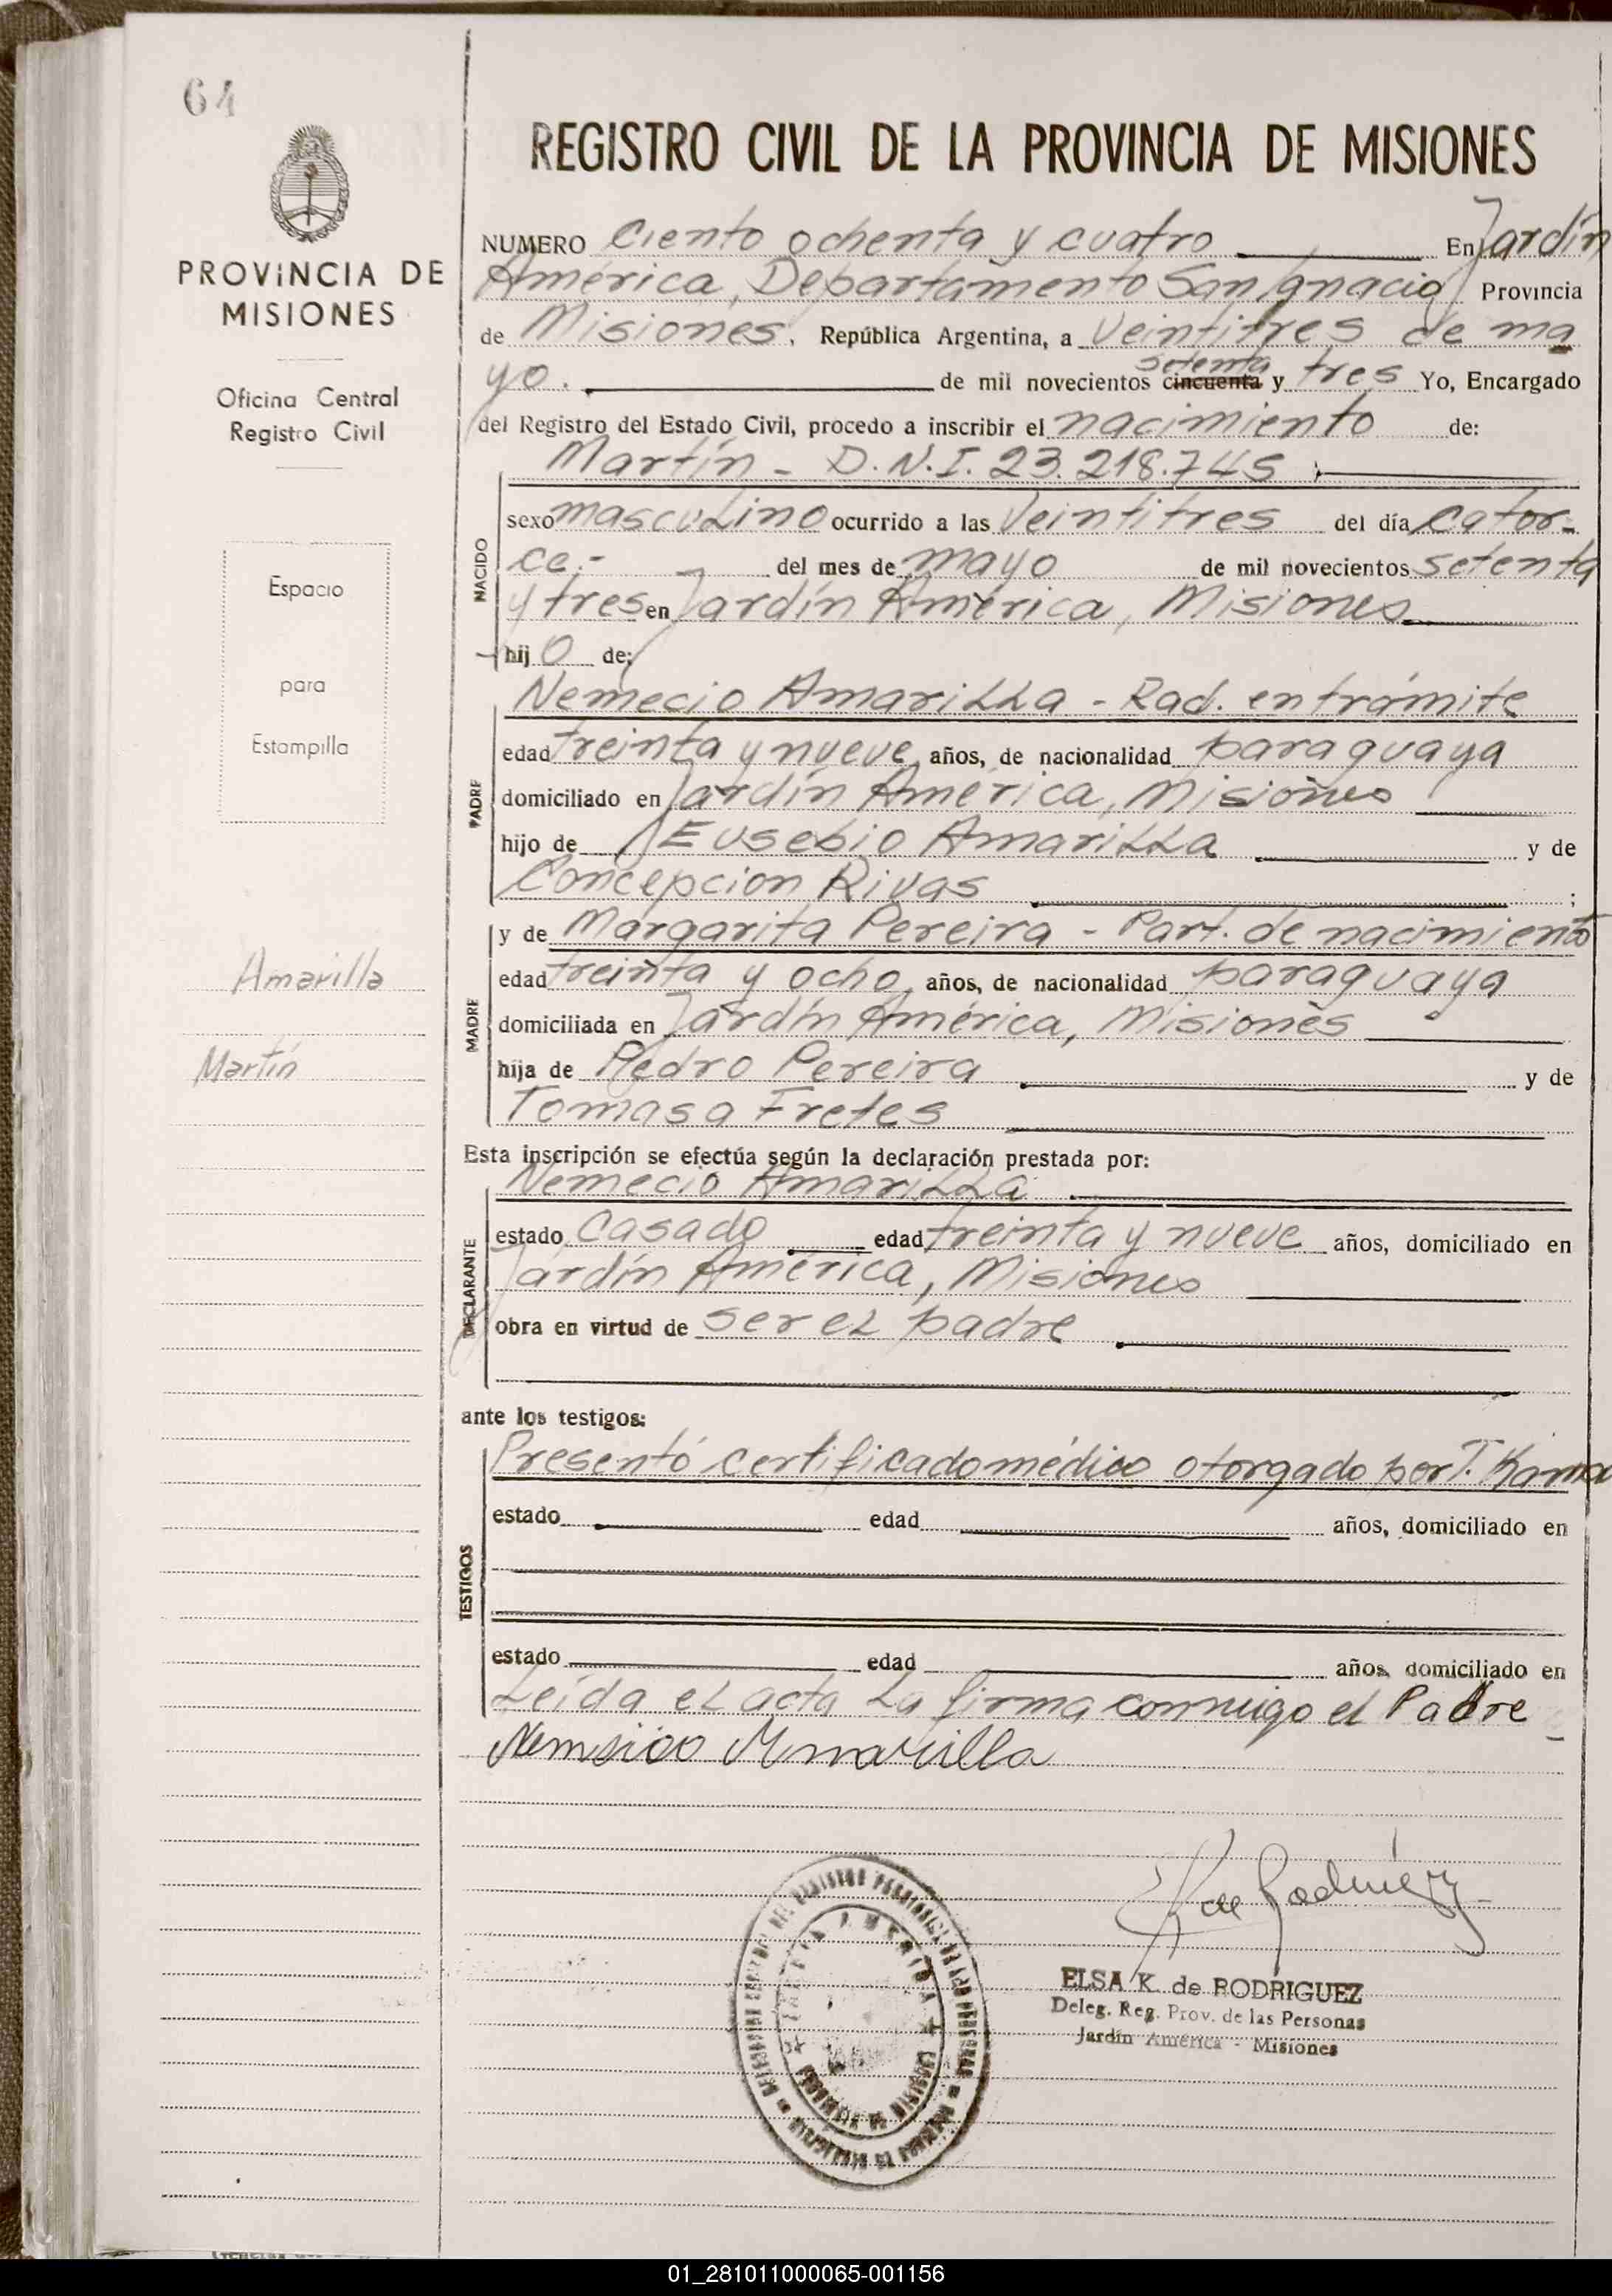 64
PROVINCIA DE
MISIONES
Oficina Central
Registro Civil
Espacio
para
Estampilla
Amarilla
Martín
REGISTRO CIVIL DE LA PROVINCIA DE MISIONES
NUMERO Ciento ochenta y cuatro En Jardín
América, Departamento San Ignacio Provincia
de Misiones, República Argentina, a Veintitres de ma
yo. de mil novecientos cincuenta setenta y tres Yo, Encargado
del Registro del Estado Civil, procedo a inscribir el nacimiento de:
Martín - D.N.I. 23.218.745
NACIDO
sexo masculino ocurrido a las Veintitres del día Cator-
ce.- del mes de mayo de mil novecientos setenta
y tres en Jardín América, Misiones
hij o de:
PADRE
Nemecio Amarilla - Rad. en trámite
edad treinta y nueve años, de nacionalidad paraguaya
domiciliado en Jardín América, Misiones
hijo de Eusebio Amarilla y de
Concepcion Rivas ;
MADRE
y de Margarita Pereira - Part. de nacimiento
edad treinta y ocho años, de nacionalidad paraguaya
domiciliada en Jardín América, Misiones
hija de Pedro Pereira y de
Tomasa Fretes
Esta inscripción se efectúa según la declaración prestada por:
DECLARANTE
Nemecio Amarilla
estado Casado edad treinta y nueve años, domiciliado en
Jardín América, Misiones
obra en virtud de ser el padre
ante los testigos:
TESTIGOS
Presentó certificado médico otorgado por T.
estado edad años, domiciliado en
estado edad años, domiciliado en
Leída el acta la firma conmigo el Padre
Amarilla
de Rodriguez
ELSA K. de RODRIGUEZ
Deleg. Reg. Prov. de las Personas
Jardín América - Misiones
01_281011000065-001156